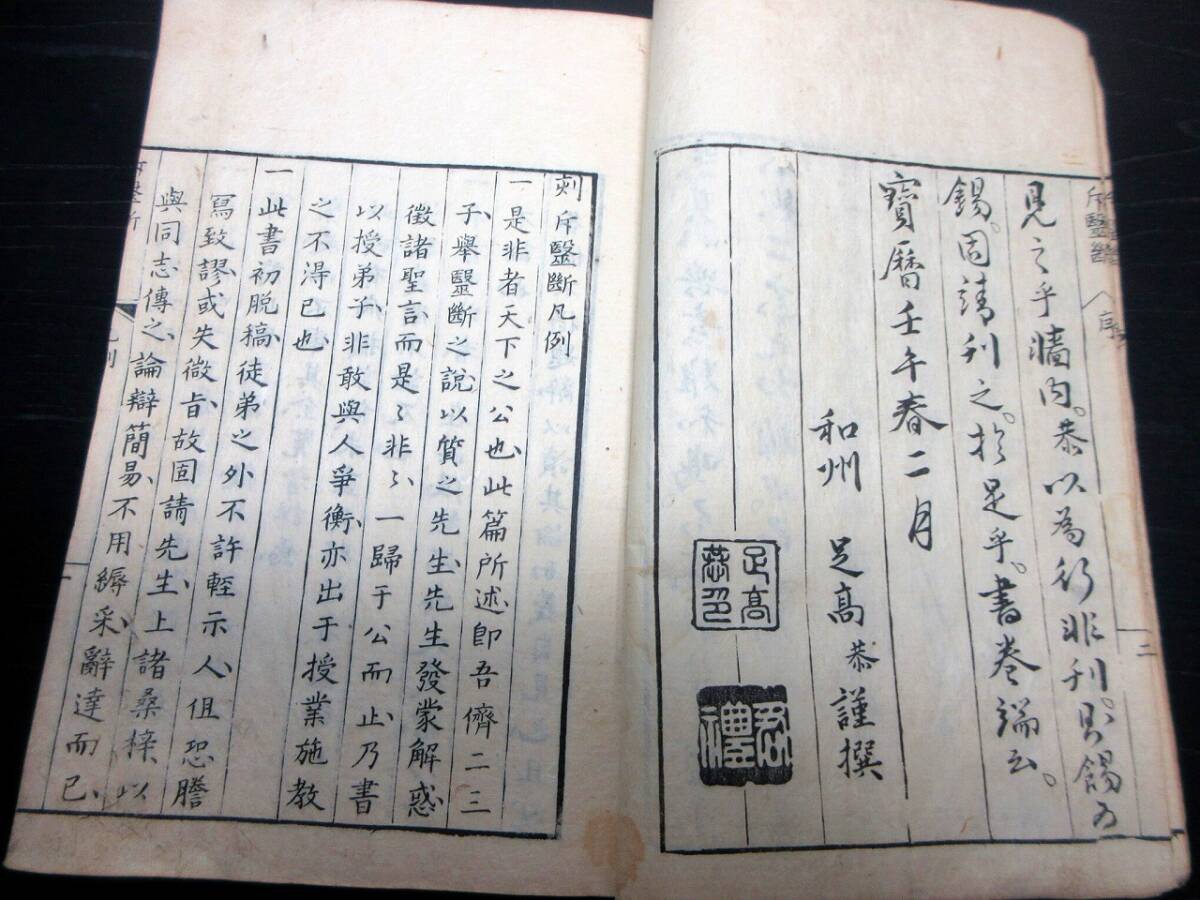 斥醫斷
序
二
見之乎牆內。恭以為行非刊。則錫乃
錫。固請刊之。於是乎。書卷端云。
寶曆壬午春二月
和州 足高恭謹撰
足高
恭印
君
禮
刻斥醫斷凡例
一是非者天下之公也此篇所述即吾儕二三
子擧毉斷之說以質之先生先生發蒙解惑
徵諸聖言而是々非々一歸于公而止乃書
以授弟子非敢與人爭衡亦出于授業施教
之不得已也
一此書初脫稿徒弟之外不許輕示人但恐謄
寫致謬或失微旨故固請先生上諸桑梓以
與同志傳之論辯簡易不用縟采辭達而已